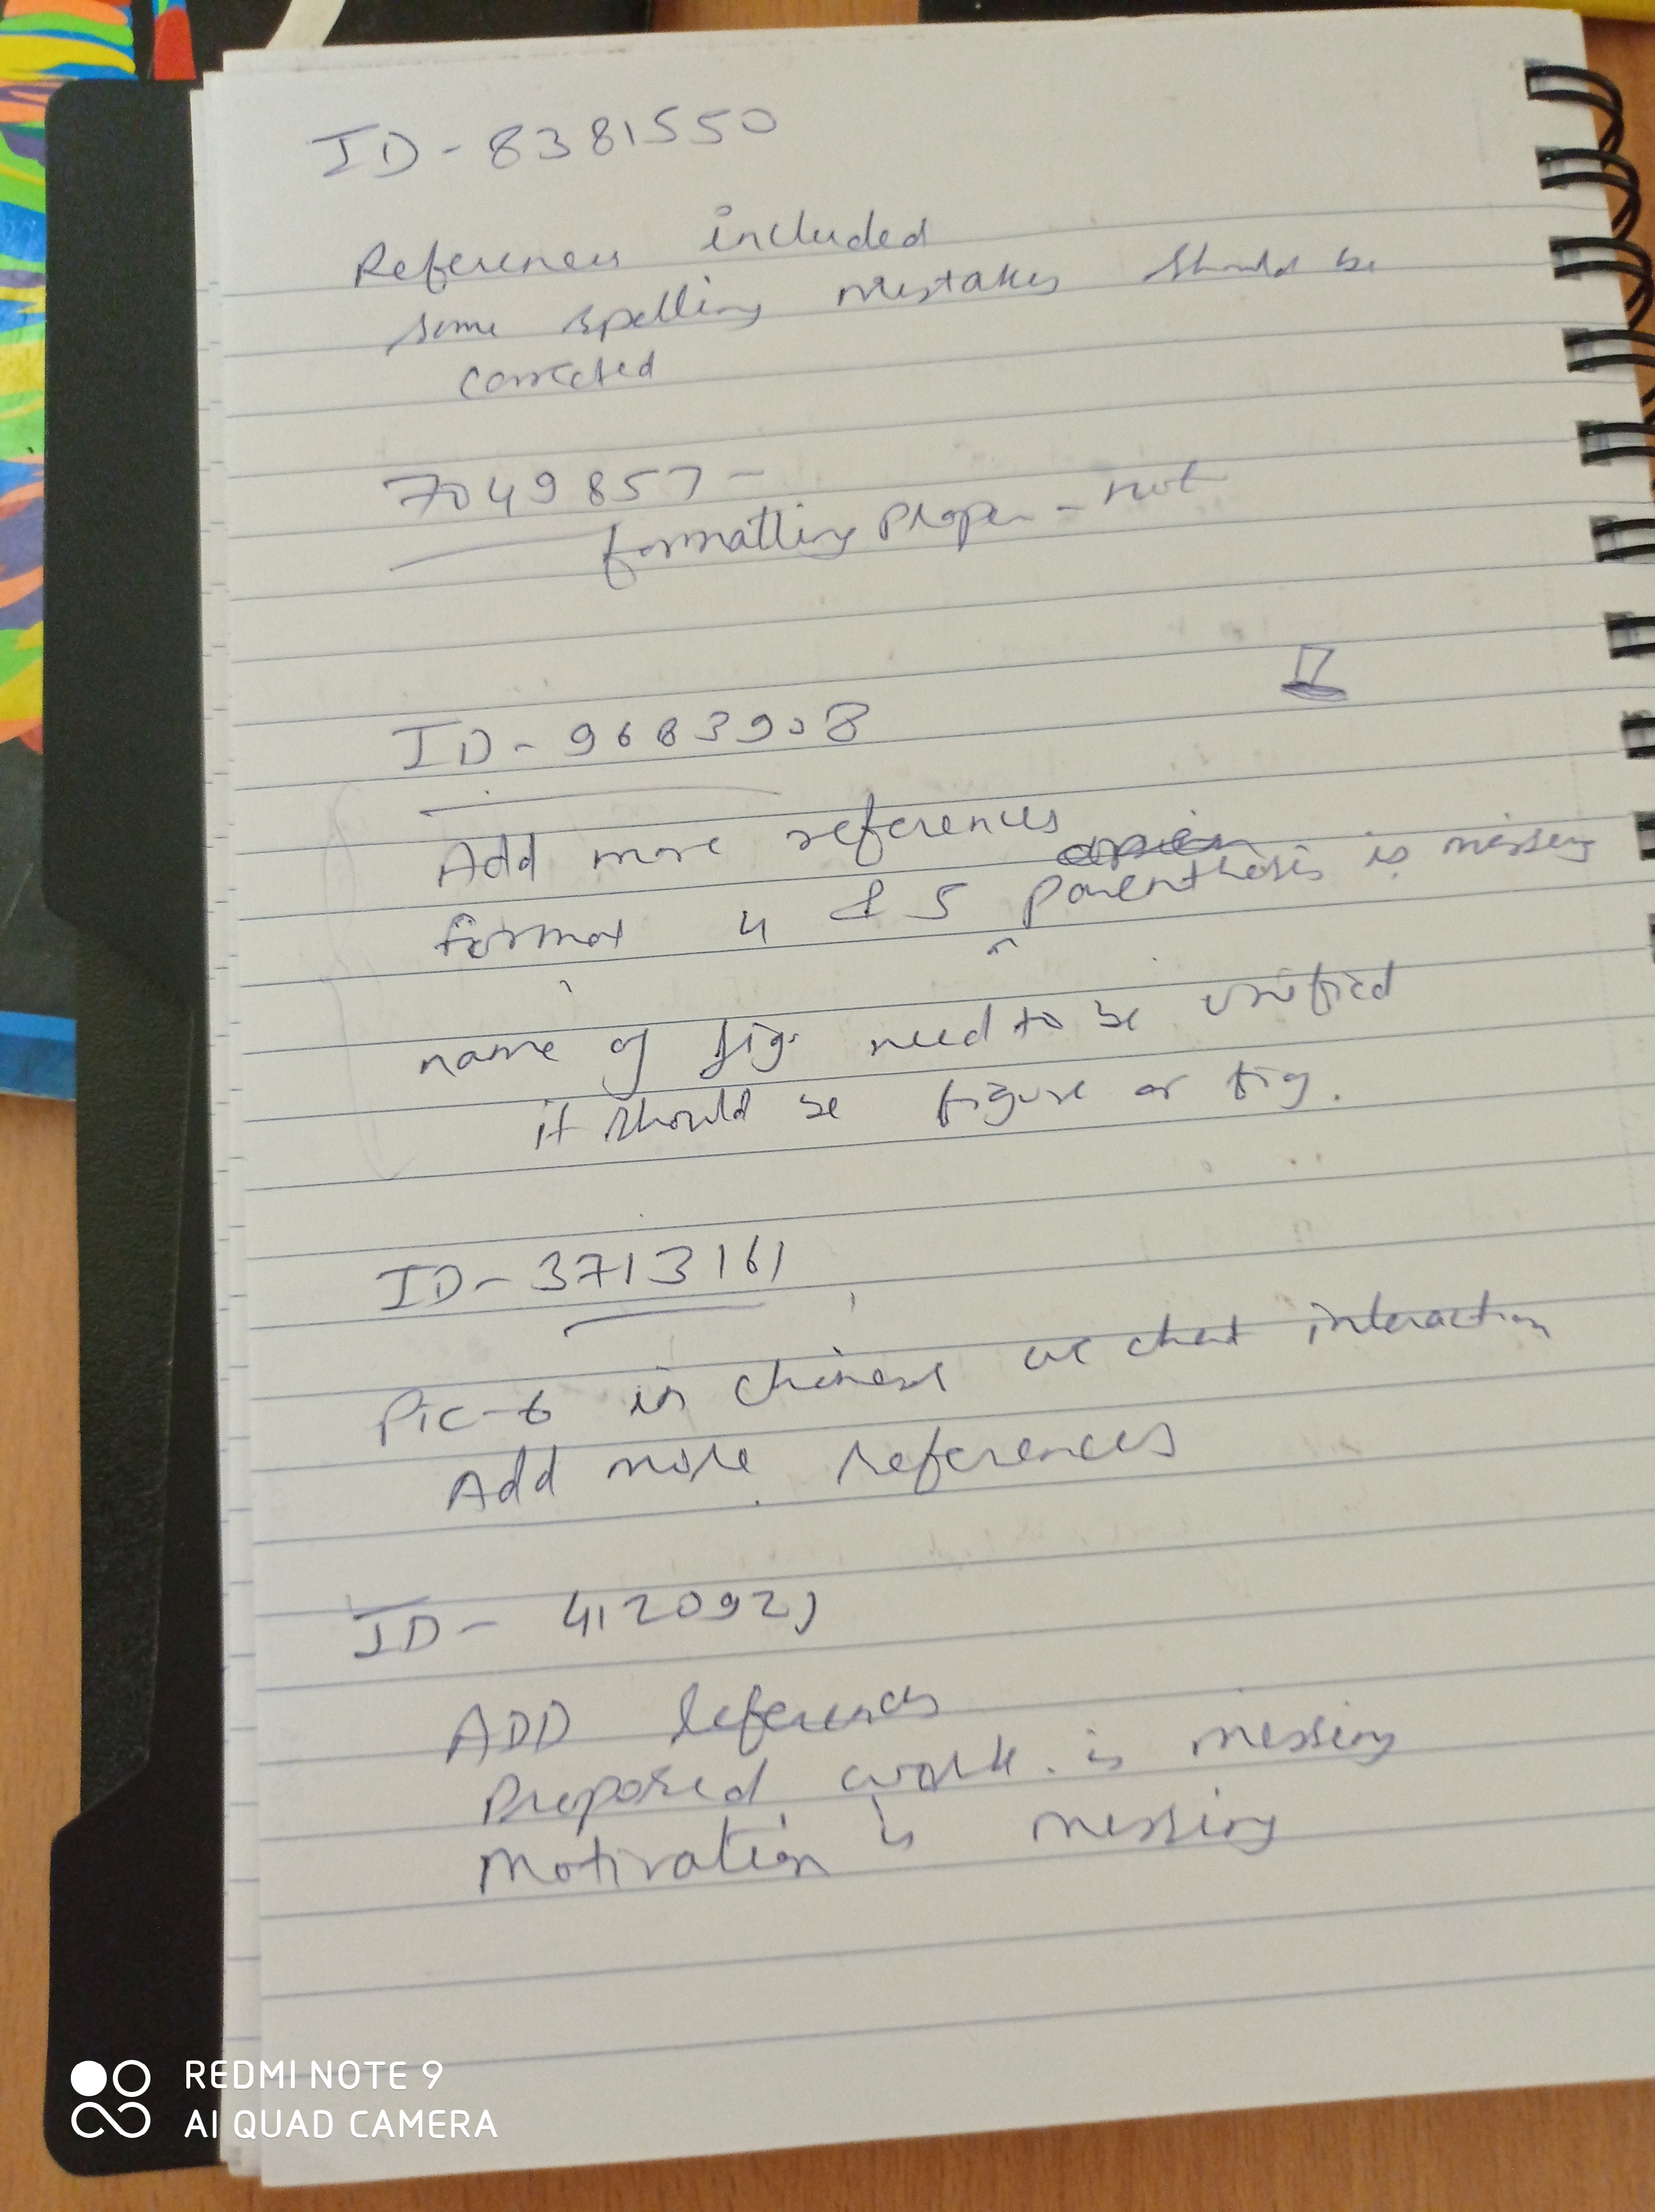 ID - 8381550
References included
some spelling mistakes should be
corrected
7049857 -
formatting proper - not
ID - 9683908
Add more references
format 4 & 5 parenthesis is missing
name of fig. need to be unified
it should be figure or fig.
ID - 3713161
Pic-6 in chinese we chat interaction
Add more references
ID - 4120921
ADD References
Proposed work is missing
Motivation is missing
REDMI NOTE 9
AI QUAD CAMERA